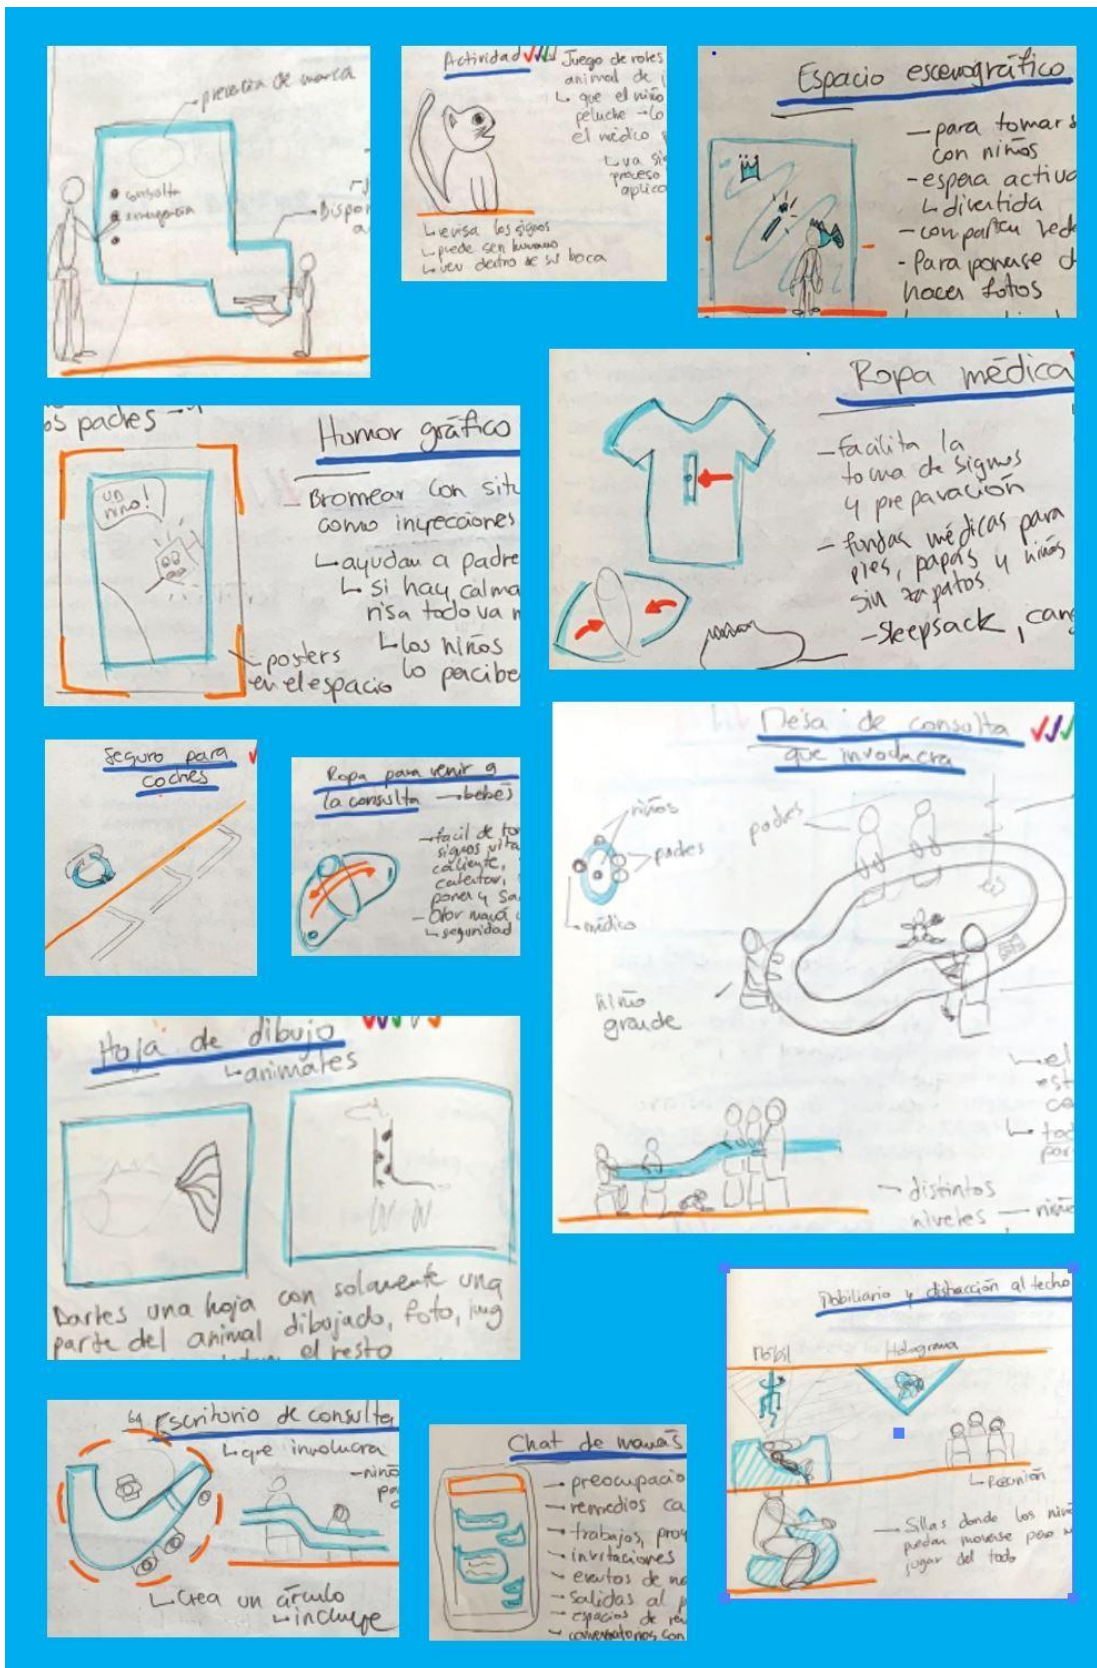 presencia de marca
consulta
emergencia
Dispo
Actividad
Juego de roles
animal de
↳ que el niño
peluche → lo
el médico
↳ va si
proceso
aplica
↳ revisa los signos
↳ puede ser humano
↳ ver dentro de su boca
Espacio escenográfico
— para tomar
con niños
- espera activa
↳ divertida
- comparten rede
- Para ponerse d
hacer fotos
os padres
Humor gráfico
un
niño!
— Bromear con situ
como inyecciones
↳ ayudan a padre
↳ si hay calma
risa todo va
↳ los niños
lo percibe
posters
en el espacio
Ropa médica
- facilita la
toma de signos
y preparación
- fundas médicas para
pies, papás y niños
sin zapatos.
- Sleepsack, can
Seguro para
coches
Ropa para venir a
la consulta → bebés
- facil de to
signos vita
caliente,
calentar,
poner y sa
- Olor mamá
↳ seguridad
Mesa de consulta
que involucra
niños
padres
médico
padres
niño
grande
↳ el
est
ca
↳ tod
por
- distintos
niveles — niño
Hoja de dibujo
↳ animales
Darles una hoja con solamente una
parte del animal dibujado, foto, jug
el resto
Escritorio de consulta
↳ que involucra
- niño
pa
↳ Crea un círculo
↳ incluye
Chat de mamás
→ preocupacio
→ remedios ca
→ trabajos, proy
→ invitaciones
→ eventos de
→ salidas al p
→ espacios de
→ conversatorios con
Mobiliario y distracción al techo
Móbil
Holograma
↳ Reunión
— Sillas donde los niñ
puedan moverse pero
jugar del todo